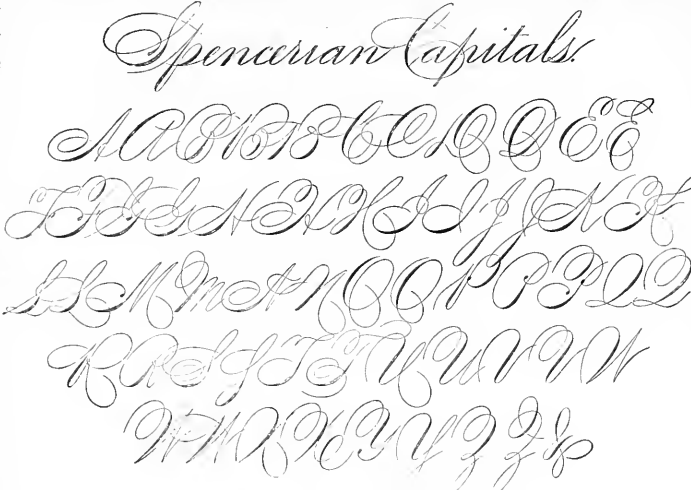 Spencerian Capitals.
A A B B B C C D D E E
F F G G H H H I I J J K K
L L M M N N O O P P P Q Q
R R S S T T U U V V W
W W X X Y Y Z Z &